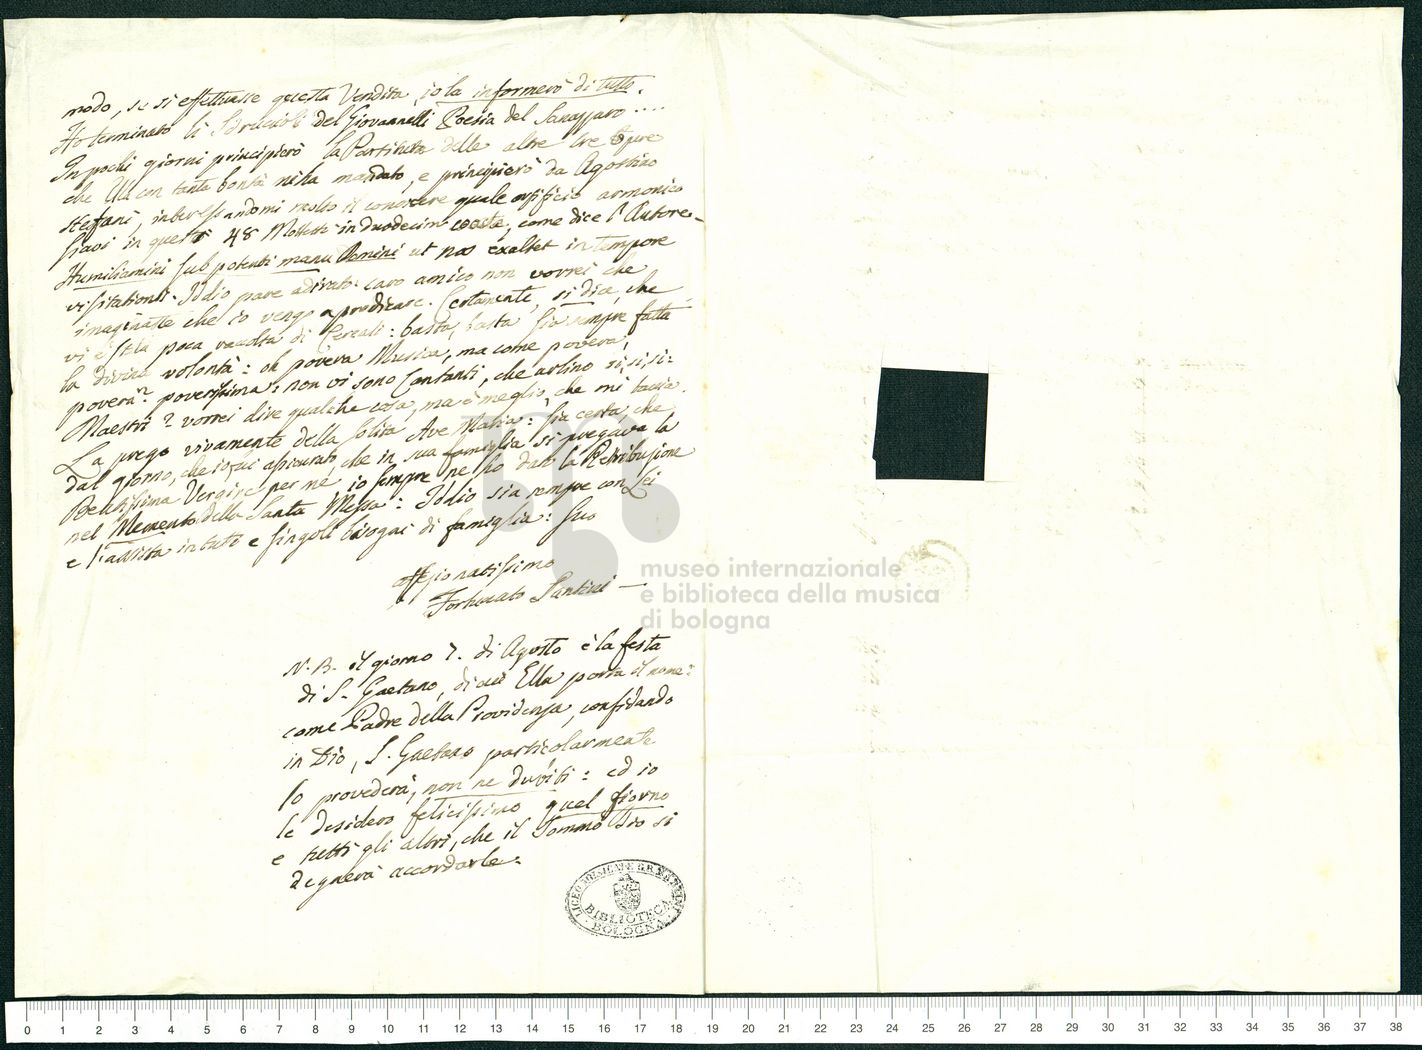 modo, se si effettuasse questa Vendita, io la informerò di tutto.
Ho terminato li Sdruccioli del Giovannelli Poesia del Sanazzaro....
In pochi giorni principierò la Partitura delle altre tre Opere
che Ella con tanta bontà mi ha mandato, e principierò da Agostino
Steffani, interessandomi molto il conoscere quale artificio armonico
siavi in questi 48 Mottetti in duodecim, come dice l'Autore
Humiliamini sub potenti manu Domini ut nos exaltet in tempore
visitationis. Iddio pare adirato: caro amico non vorrei che
imaginaste che io vengo a predicare. Certamente, si dice, che
vi è stla poca raccolta di Cereali: basta, basta sia sempre fatta
la divina volontà: oh povera Musica, ma come povera,
povera? poverissima: non vi sono Cantanti, che urlino si, si, si:
Maestri? vorrei dire qualche cosa, ma è meglio, che mi taccia.
La prego vivamente della solita Ave Maria: sia certa che
dal giorno, che io fui assicurato che in sua famiglia si pregava la
Beatissima Vergine per me io sempre ne ho dato la Retribuzione
nel Memento della Santa Messa: Iddio sia sempre con Lei
e l'assista in tutti e singoli bisogni di famiglia: Suo
affezionatissimo
Fortunato Santini
N. B. il giorno 7. di Agosto è la festa
di S. Gaetano, di cui Ella porta il nome:
come Padre della Providenza, confidando
in Dio, S. Gaetano particolarmente
lo provederà, non ne dubiti: ed io
le desidero felicissimo quel giorno
e tutti gli altri, che il Sommo Dio si
degnerà accordarle.
LICEO MUSICALE
BIBLIOTECA
BOLOGNA
museo internazionale
e biblioteca della musica
di bologna
0 1 2 3 4 5 6 7 8 9 10 11 12 13 14 15 16 17 18 19 20 21 22 23 24 25 26 27 28 29 30 31 32 33 34 35 36 37 38